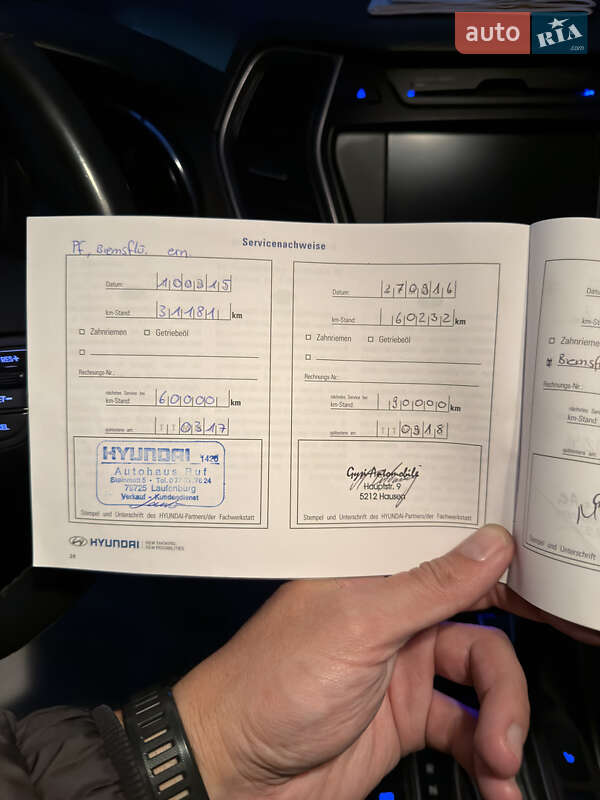 auto RIA.com
Servicenachweise
PF, Bremsflü. ern.
Datum: 100315
km-Stand: 31181 km
Zahnriemen Getriebeöl
Rechnungs-Nr.:
nächstes Service bei
km-Stand: 60000 km
spätestens am: TT0317
HYUNDAI 1420
Autohaus Ruf
79725 Laufenburg
Verkauf - Kundendienst
Stempel und Unterschrift des HYUNDAI-Partners/der Fachwerkstatt
Datum: 270916
km-Stand: 60232 km
Zahnriemen Getriebeöl
Rechnungs-Nr.:
nächstes Service bei
km-Stand: 90000 km
spätestens am: TT0918
Gypi Automobile
Hauptstr. 9
5212 Hausen
Stempel und Unterschrift des HYUNDAI-Partners/der Fachwerkstatt
HYUNDAI NEW THINKING. NEW POSSIBILITIES.
Datum:
km-Stand
Zahnriemen
Bremsfl
Rechnungs-Nr.:
nächstes
km-Stand:
spätestens am:
Stempel und Unterschrift
RES+